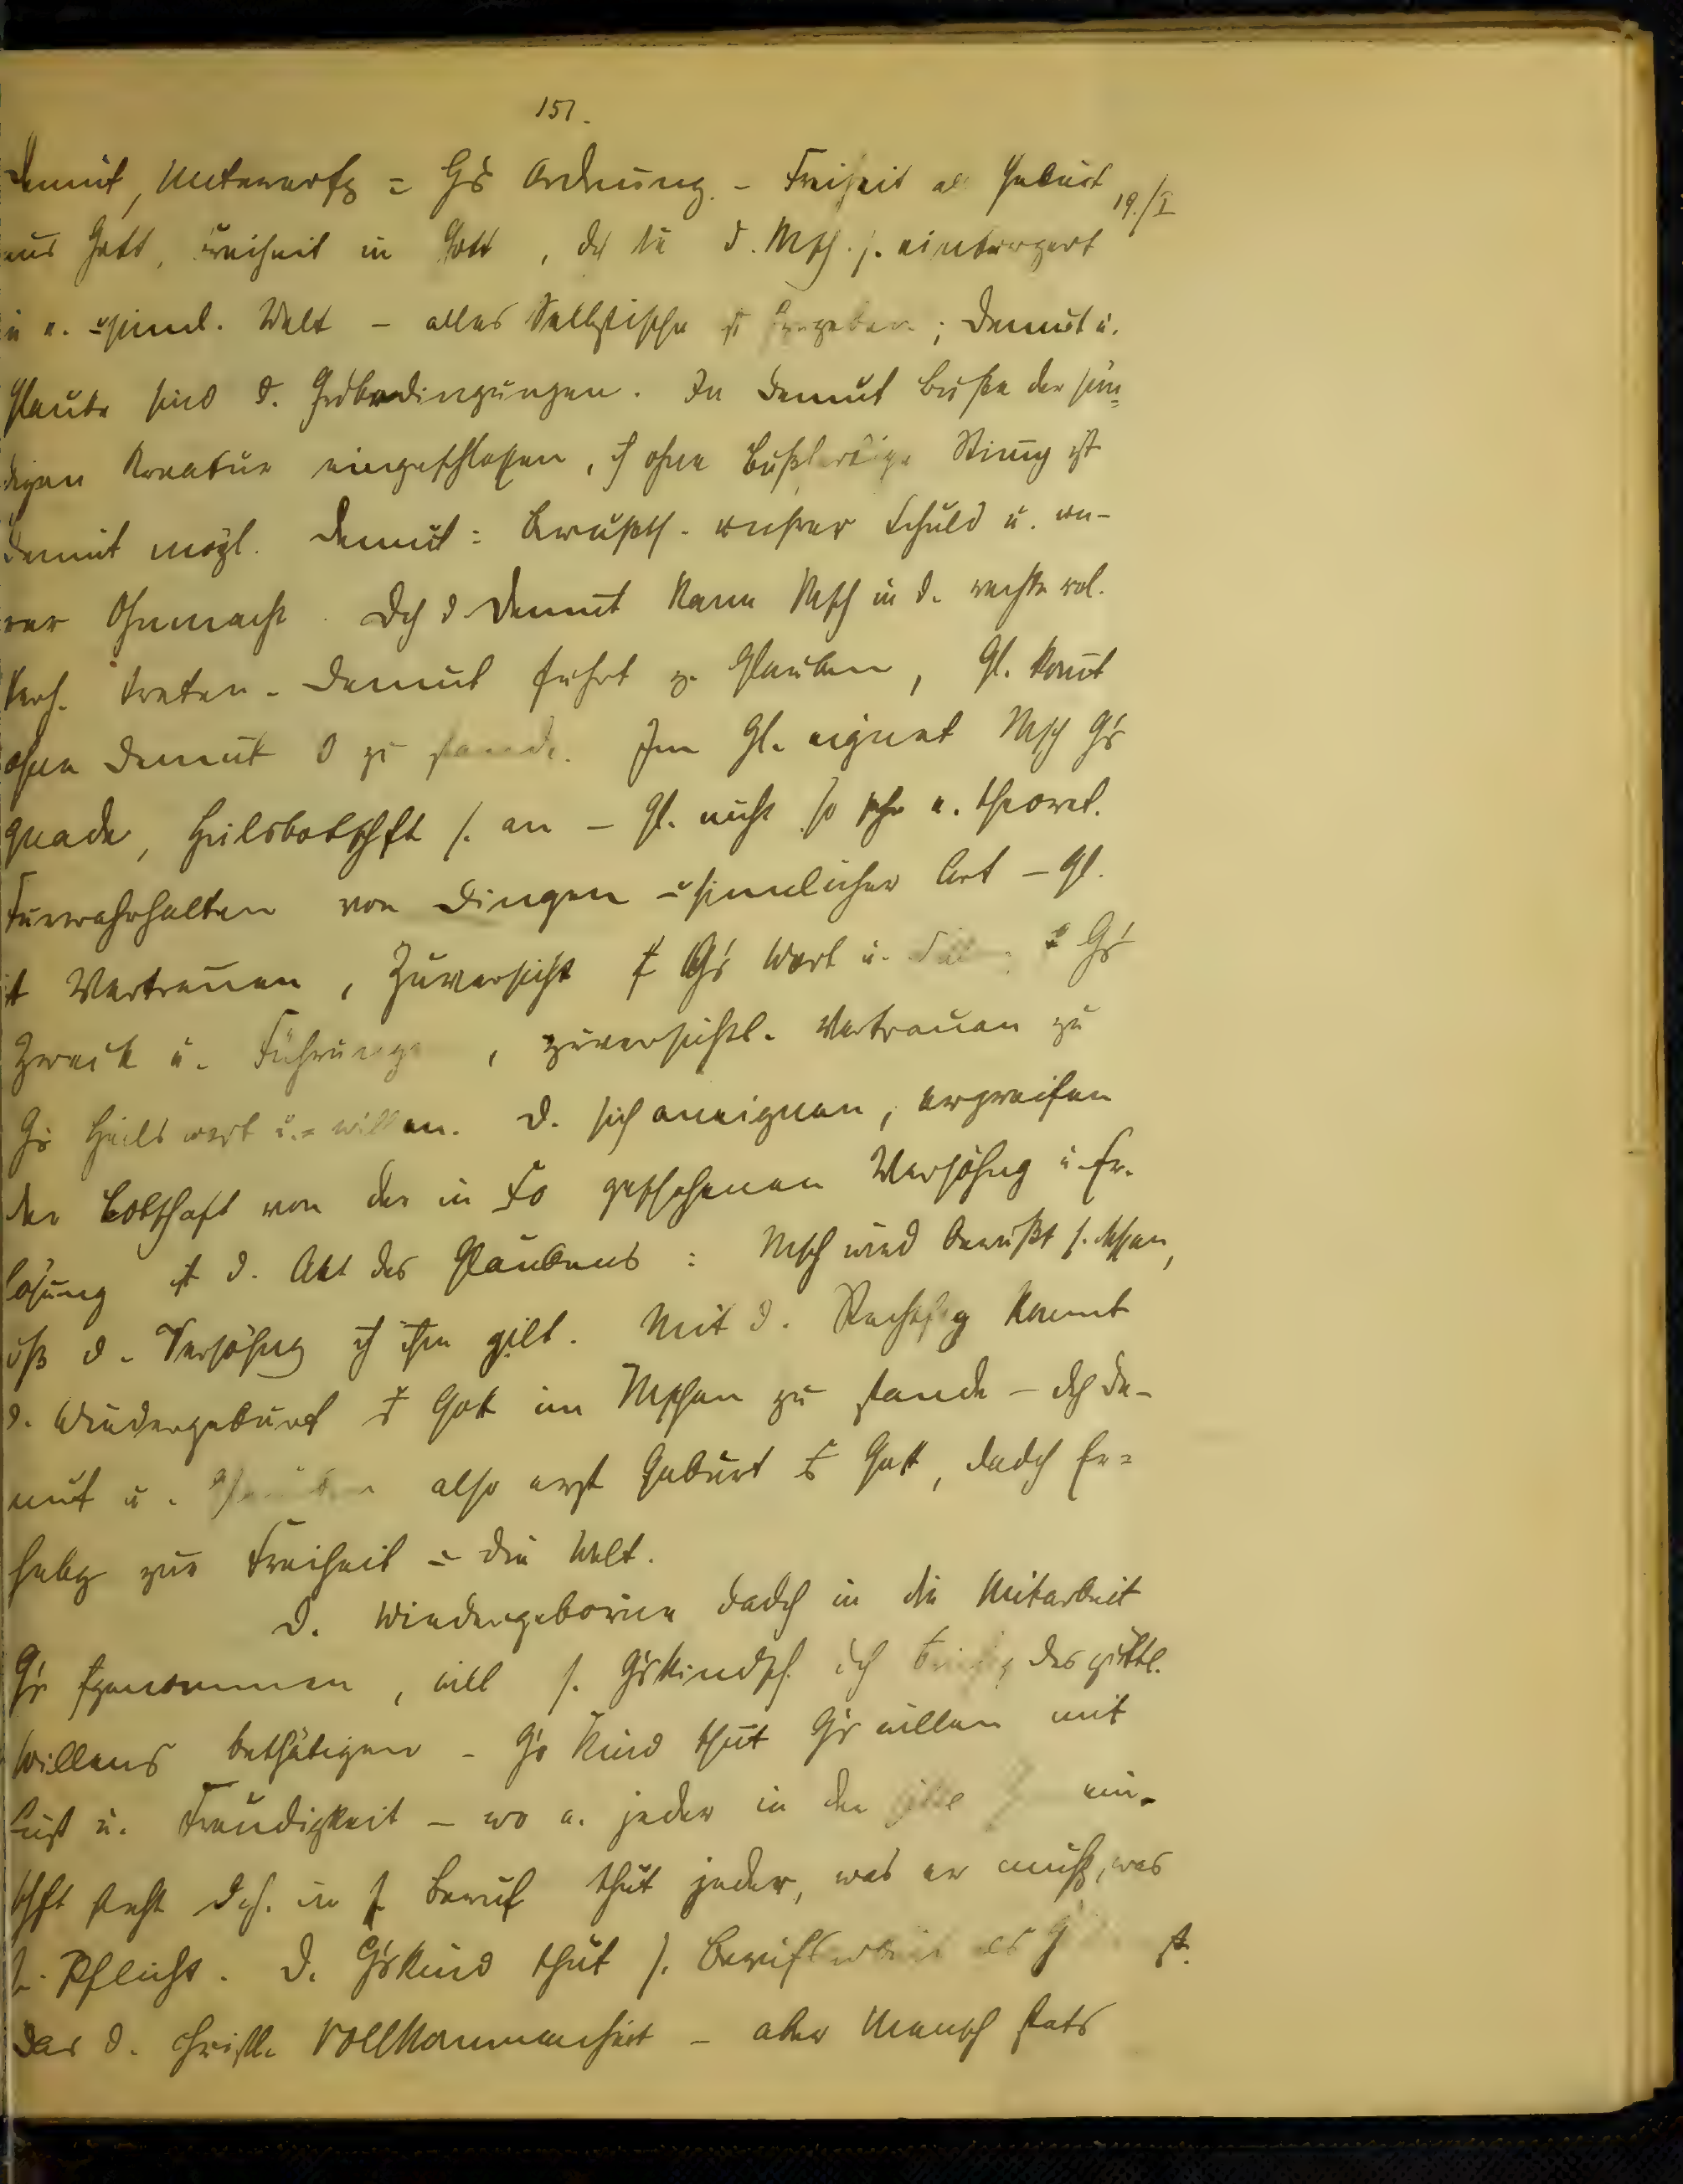 151.
Demut, Unterwerfg = G's Ordnung. - Freiheit als Geburt 19./I
aus Gott, Freiheit in Gott, d. Msch. s. einbürgert
in e. übersinnl. Welt - alles Selbstische ist ; Demut u.
Glaube sind d. Grdbedingungen. In Demut Buße der sün-
digen Kreatur eingeschlossen, ohne bußfertige Stimg ist
Demut mögl. Demut = Bewußts. unsrer Schuld u. uns-
rer Ohnmacht. Dch d. Demut kann Msch in d. rechte rel.
Verh. treten. Demut führt z. Glauben, Gl. komt
ohne Demut 0 zu stande. Im Gl. eignet Msch G's
Gnade, Heilsbotschft s. an - Gl. nicht so sehr e. theoret.
Fürwahrhalten von Dingen übersinnlicher Art - Gl.
ist Vertrauen, Zuversicht auf G's Wort u. G's
Zweck u. Führunge, zuversichtl. Vertrauen zu
G's Heilswort u. = willen. D. sich aneignen, ergreifen
der Botschaft von der in Xo geschehenen Versöhng u. Er-
lösung ist d. Akt des Glaubens: Msch wird bewußt s. dessen,
dß d. Versöhng ihm gilt. Mit d. Rechtfg kommt
d. Wiedergeburt aus Gott im Mschen zu stande - dch De-
mut u. Glauben also erst Geburt aus Gott, dadch Er-
hebg zur Freiheit über die Welt.
D. Wiedergeborne dadch in die Mitarbeit
G's aufgenommen, will s. G'skindsch. dch des göttl.
Willens bethätigen - G's Kind thut G's willen mit
Lust u. Freudigkeit - wo e. jeder in der
schft steht Dch. in s. Beruf thut jeder, was er muß, was
s. Pflicht. D. G'skind thut s. Berufsarbeit als
Das d. christl. Vollkommenheit - aber Mensch stets